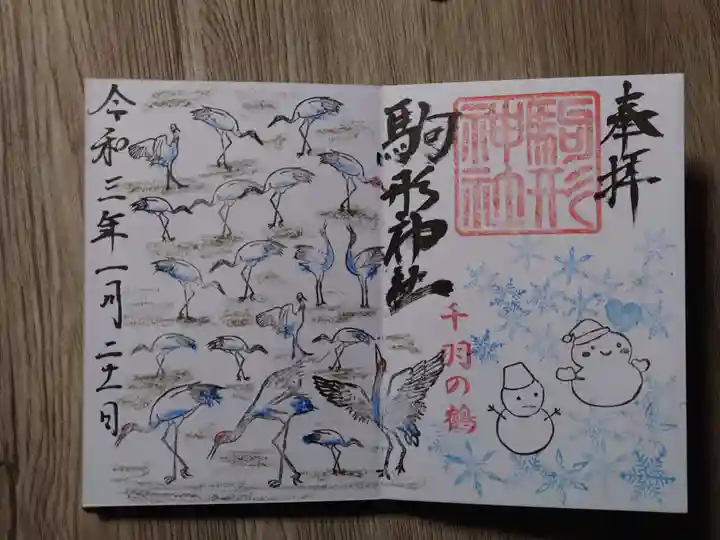 奉拝
駒形
神社
駒形神社
千羽の鶴
令和三年一月二十一日